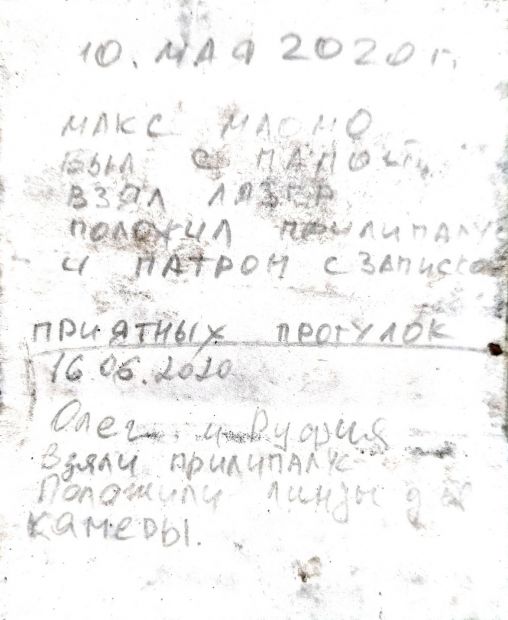 10. МАЯ 2020 г.
МАКС МАОМО
БЫЛ С ПАПОЙ
ВЗЯЛ ЛАЗЕР
ПОЛОЖИЛ ПРИЛИПАЛУ
И ПАТРОН С ЗАПИСКО
ПРИЯТНЫХ ПРОГУЛОК
16.06.2020
Олег и Руфия
Взяли прилипалус
Положили линзы для
камеры.